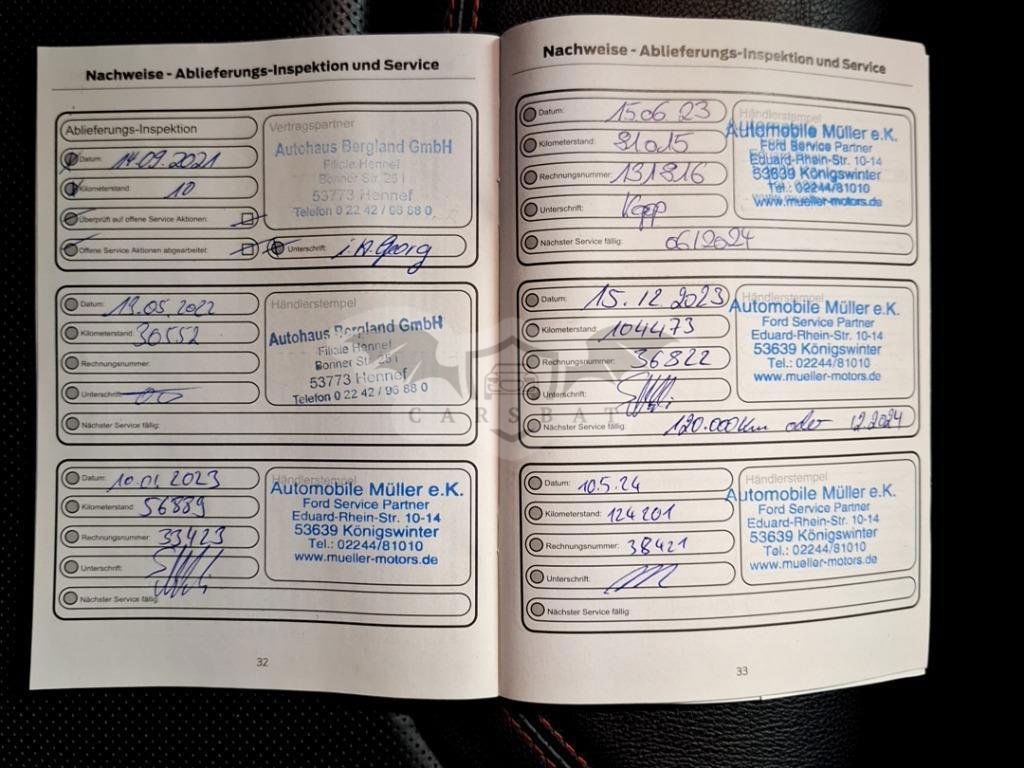 Nachweise - Ablieferungs-Inspektion und Service
Ablieferungs-Inspektion
Datum: 14.09.2021
Kilometerstand: 10
Überprüft auf offene Service Aktionen:
Offene Service Aktionen abgearbeitet:
Unterschrift: i.A. Georg
Vertragspartner
Autohaus Bergland GmbH
Filiale Hennef
Bonner Str. 25 i
53773 Hennef
Telefon 0 22 42 / 96 88 0
Datum: 19.05.2022
Kilometerstand: 30552
Rechnungsnummer:
Unterschrift:
Nächster Service fällig:
Händlerstempel
Autohaus Bergland GmbH
Filiale Hennef
Bonner Str. 25 i
53773 Hennef
Telefon 0 22 42 / 96 88 0
Datum: 10.01.2023
Kilometerstand: 56889
Rechnungsnummer: 33423
Unterschrift:
Nächster Service fällig:
Händlerstempel
Automobile Müller e.K.
Ford Service Partner
Eduard-Rhein-Str. 10-14
53639 Königswinter
Tel.: 02244/81010
www.mueller-motors.de
32
Nachweise - Ablieferungs-Inspektion und Service
Datum: 15.06.23
Kilometerstand: 81015
Rechnungsnummer: 131816
Unterschrift: Kopp
Nächster Service fällig: 06/2024
Händlerstempel
Automobile Müller e.K.
Ford Service Partner
Eduard-Rhein-Str. 10-14
53639 Königswinter
Tel.: 02244/81010
www.mueller-motors.de
Datum: 15.12.2023
Kilometerstand: 104473
Rechnungsnummer: 36822
Unterschrift:
Nächster Service fällig: 120.000km oder 12.2024
Händlerstempel
Automobile Müller e.K.
Ford Service Partner
Eduard-Rhein-Str. 10-14
53639 Königswinter
Tel.: 02244/81010
www.mueller-motors.de
Datum: 10.5.24
Kilometerstand: 124201
Rechnungsnummer: 38421
Unterschrift:
Nächster Service fällig:
Händlerstempel
Automobile Müller e.K.
Ford Service Partner
Eduard-Rhein-Str. 10-14
53639 Königswinter
Tel.: 02244/81010
www.mueller-motors.de
33
CARSBAT